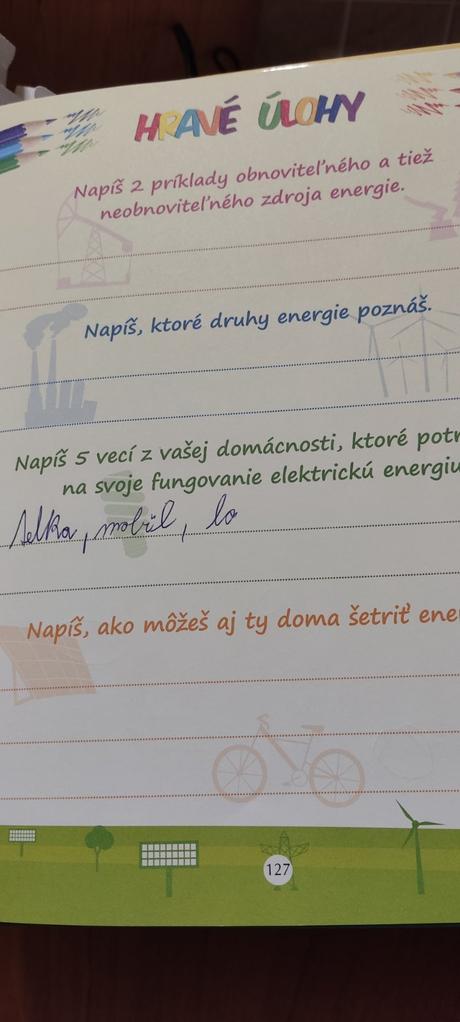 HRAVÉ ÚLOHY
Napíš 2 príklady obnoviteľného a tiež
neobnoviteľného zdroja energie.
Napíš, ktoré druhy energie poznáš.
Napíš 5 vecí z vašej domácnosti, ktoré potr
na svoje fungovanie elektrickú energiu
telka, mobil, lo
Napíš, ako môžeš aj ty doma šetriť ene
127